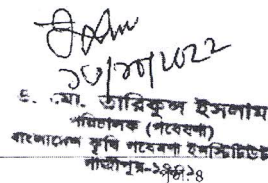 ১০/১০/2022
ড. মো. তারিকুল ইসলাম
পরিচালক (গবেষণা)
বাংলাদেশ কৃষি গবেষণা ইনস্টিটিউট
গাজীপুর-১৭০১